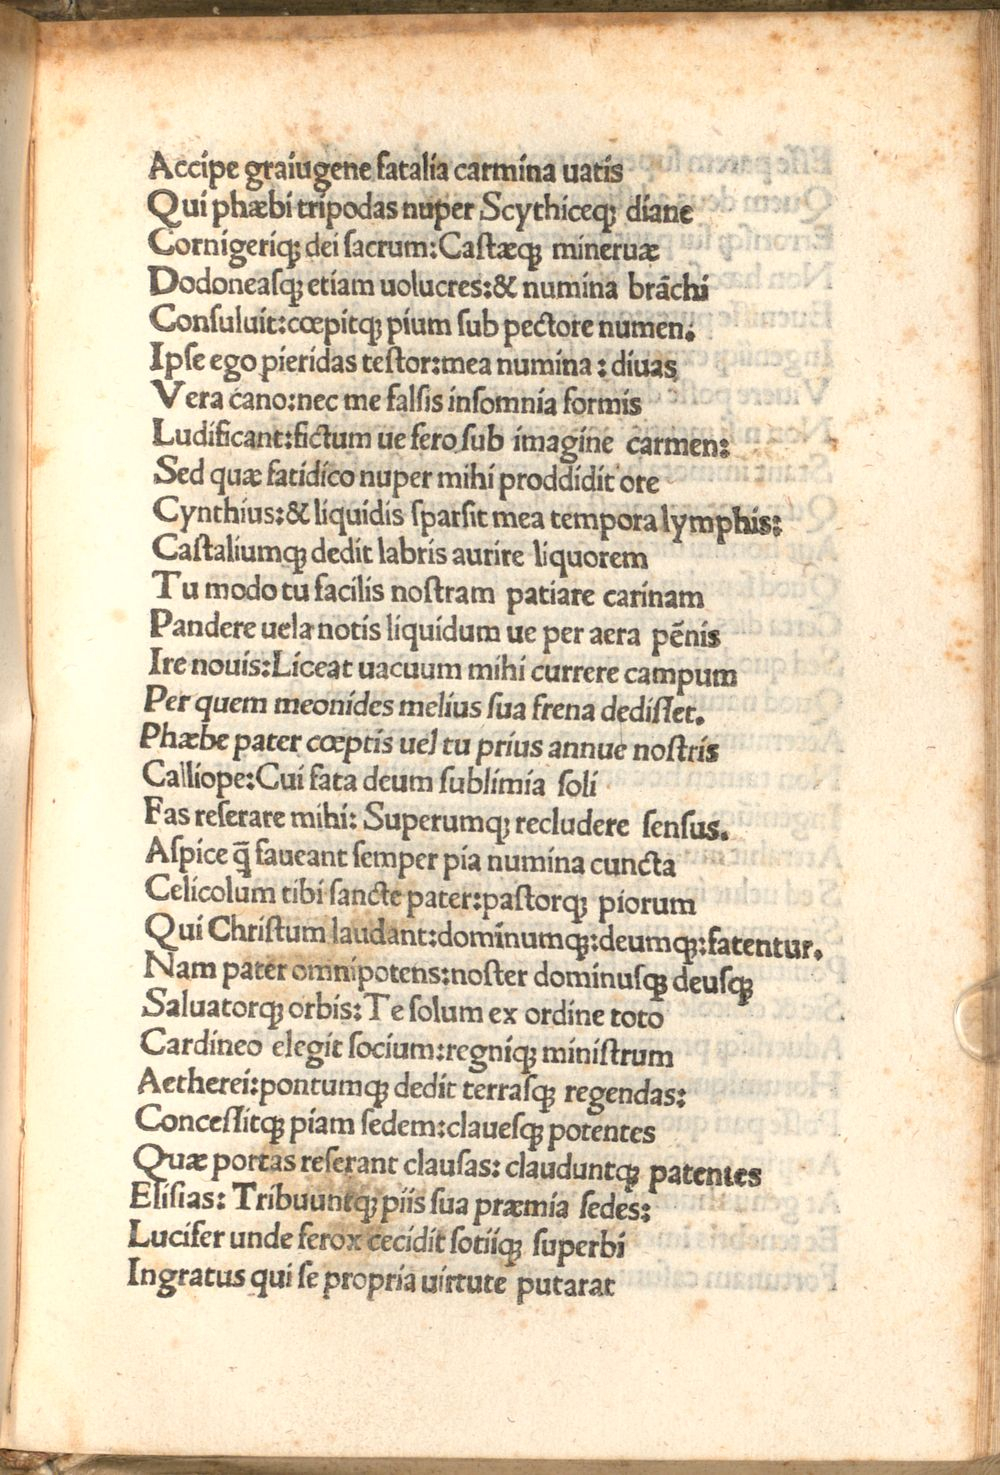 Accipe graiugene fatalia carmina uatis
Qui phæbi tripodas nuper Scythiceqꝫ diane
Cornigeriqꝫ dei sacrum: Castæqꝫ mineruæ
Dodoneasqꝫ etiam uolucres: & numina brāchi
Consuluit: cœpitqꝫ pium sub pectore numen.
Ipse ego pieridas testor: mea numina: diuas
Vera cano: nec me falsis insomnia formis
Ludificant: fictum ue fero sub imagine carmen:
Sed quæ fatidico nuper mihi proddidit ore
Cynthius: & liquidis sparsit mea tempora lymphis:
Castaliumqꝫ dedit labris aurire liquorem
Tu modo tu facilis nostram patiare carinam
Pandere uela notis liquidum ue per aera pēnis
Ire nouis: Liceat uacuum mihi currere campum
Per quem meonides melius sua frena dedisset.
Phæbe pater cœptis uel tu prius annue nostris
Calliope: Cui fata deum sublimia soli
Fas reserare mihi: Superumqꝫ recludere sensus.
Aspice q̄ faueant semper pia numina cuncta
Celicolum tibi sancte pater: pastorqꝫ piorum
Qui Christum laudant: dominumqꝫ: deumqꝫ: fatentur.
Nam pater omnipotens: noster dominusqꝫ deusqꝫ
Saluatorqꝫ orbis: Te solum ex ordine toto
Cardineo elegit socium: regniqꝫ ministrum
Aetherei: pontumqꝫ dedit terrasqꝫ regendas:
Concessitqꝫ piam sedem: clauesqꝫ potentes
Quæ portas reserant clausas: clauduntqꝫ patentes
Elisias: Tribuuntqꝫ piis sua præmia sedes:
Lucifer unde ferox cecidit sotiiqꝫ superbi
Ingratus qui se propria uirtute putarat